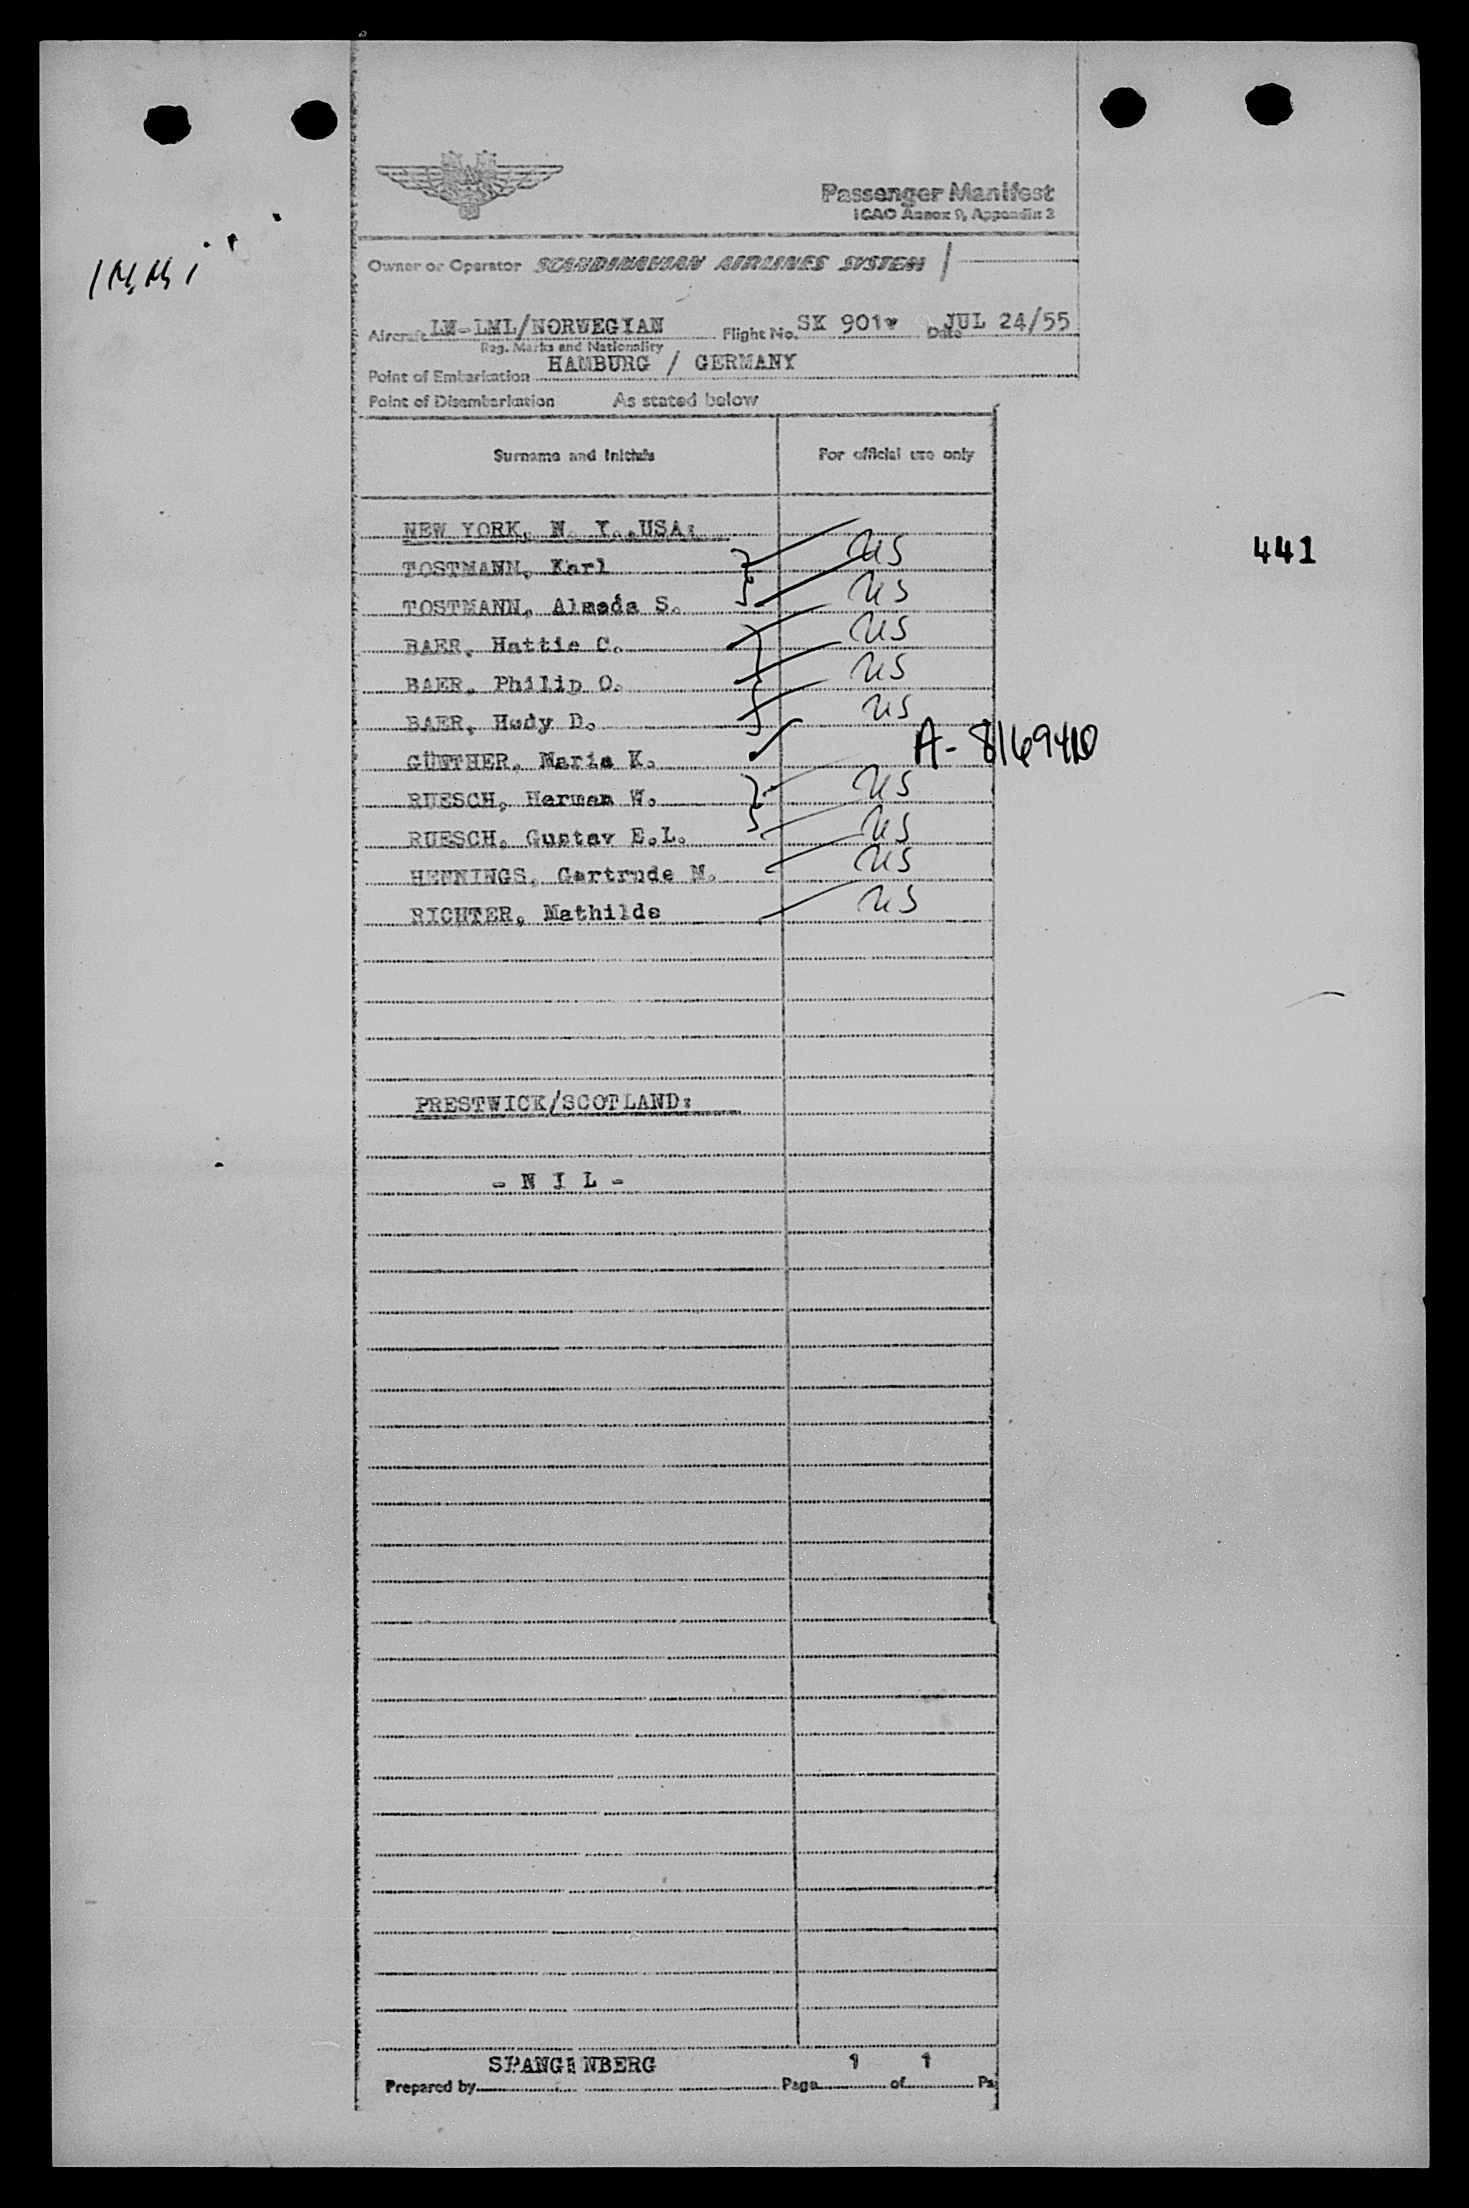 Passenger Manifest
ICAO Annex 9, Appendix 3
Owner or Operator SCANDINAVIAN AIRLINES SYSTEM
Aircraft LN-LML/NORWEGIAN Flight No. SK 901 Date JUL 24/55
Reg. Marks and Nationality
Point of Embarkation HAMBURG / GERMANY
Point of Disembarkation As stated below
Surname and Initials For official use only
NEW YORK, N. Y.,USA:
TOSTMANN, Karl US
441
TOSTMANN, Almeda S. US
BAER, Hattie C. US
BAER, Philip O. US
BAER, Hedy D. US
GÜNTHER, Maria K. A-
RUESCH, Herman W. US
RUESCH, Gustav E.L. US
HENNINGS, Gertrude M. US
RICHTER, Mathilde US
PRESTWICK/SCOTLAND:
- N I L -
SPANGENBERG 1 1
Prepared by Page of Pa